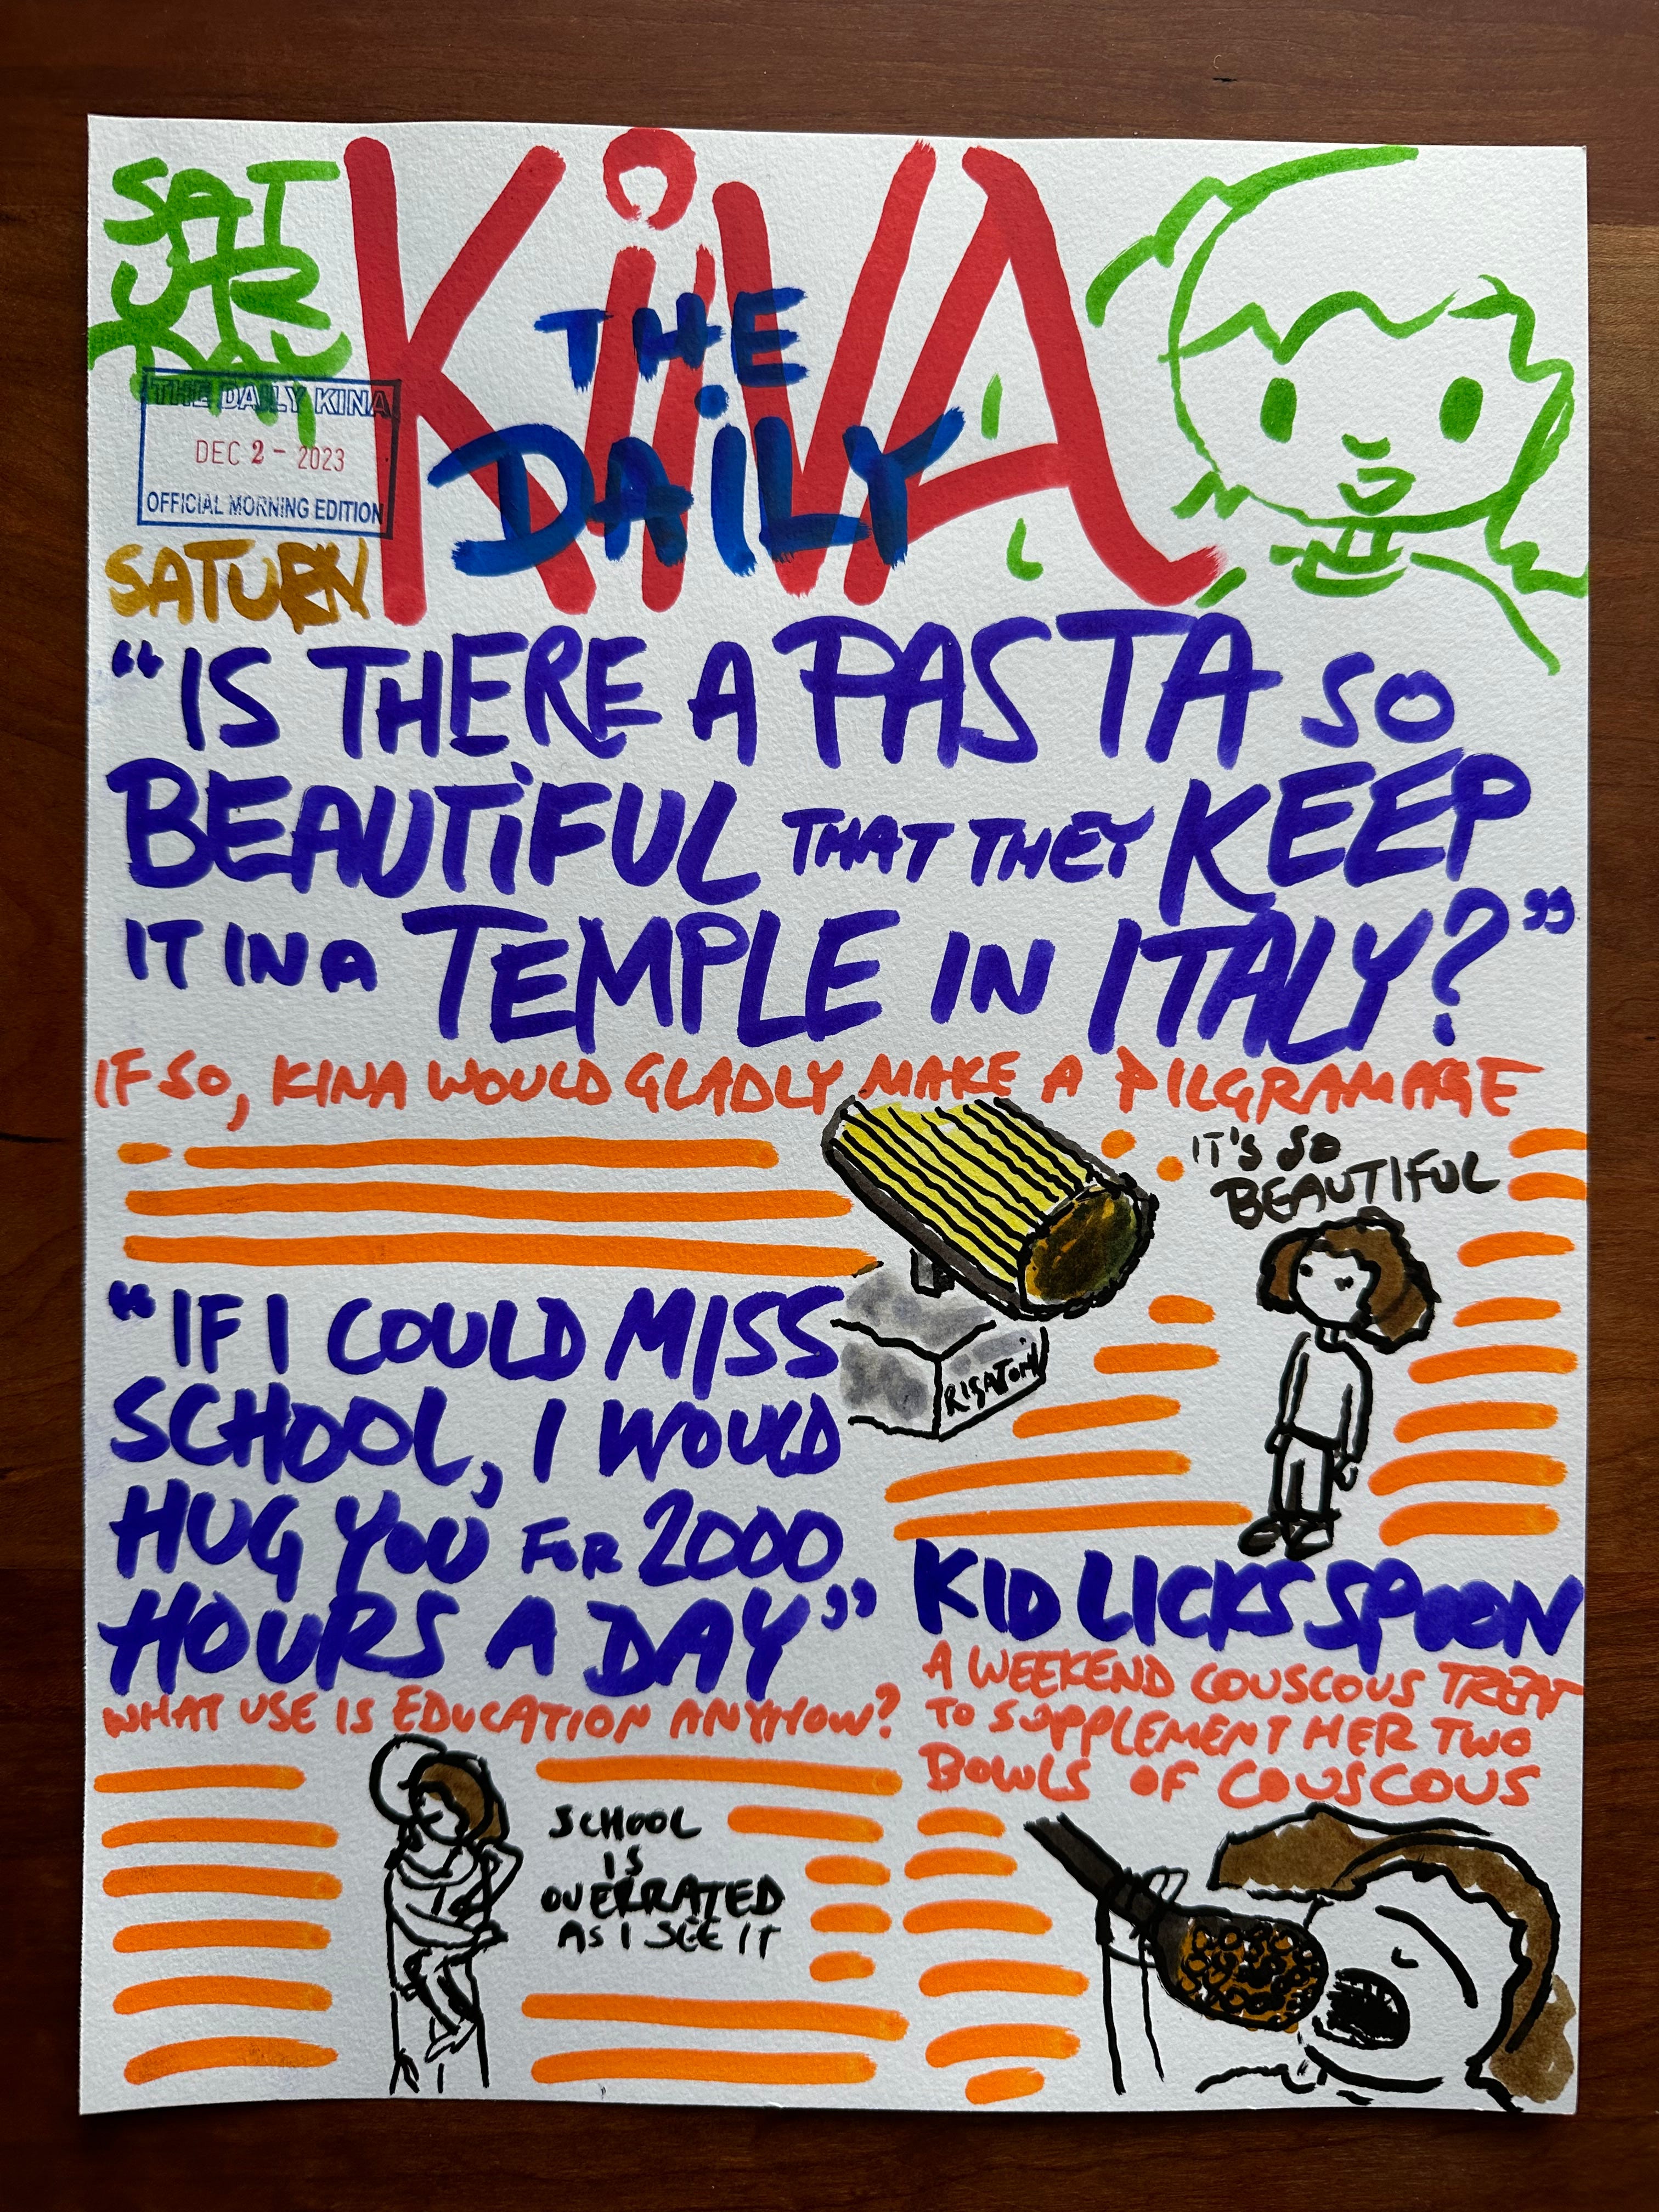 SAT
UR
DAY
KiNA
THE
DAiLY
THE DAILY KINA
DEC 2 - 2023
OFFICIAL MORNING EDITION
SATURN
“IS THERE A PASTA SO
BEAUTiFUL THAT THEY KEEP
IT IN A TEMPLE IN ITALY?”
IF SO, KINA WOULD GLADLY MAKE A PILGRAMAGE
IT'S SO
BEAUTIFUL
RIGATONi
“IF I COULD MISS
SCHOOL, I WOULD
HUG YOU FOR 2000
HOURS A DAY”
WHAT USE IS EDUCATION ANYHOW?
SCHOOL
IS
OVERRATED
AS I SEE IT
KID LICKS SPOON
A WEEKEND COUSCOUS TREAT
TO SUPPLEMENT HER TWO
BOWLS OF COUSCOUS